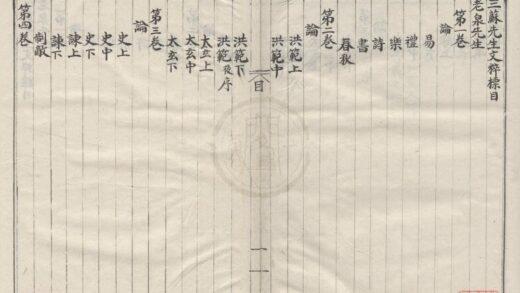 三蘇先生文粹標目
老泉先生
第一卷
論
易
禮
樂
詩
書
春秋
第二卷
論
洪範上
洪範中
目
一
洪範下
洪範後序
太玄上
太玄中
太玄下
第三卷
論
史上
史中
史下
諫上
諫下
制敵
第四卷